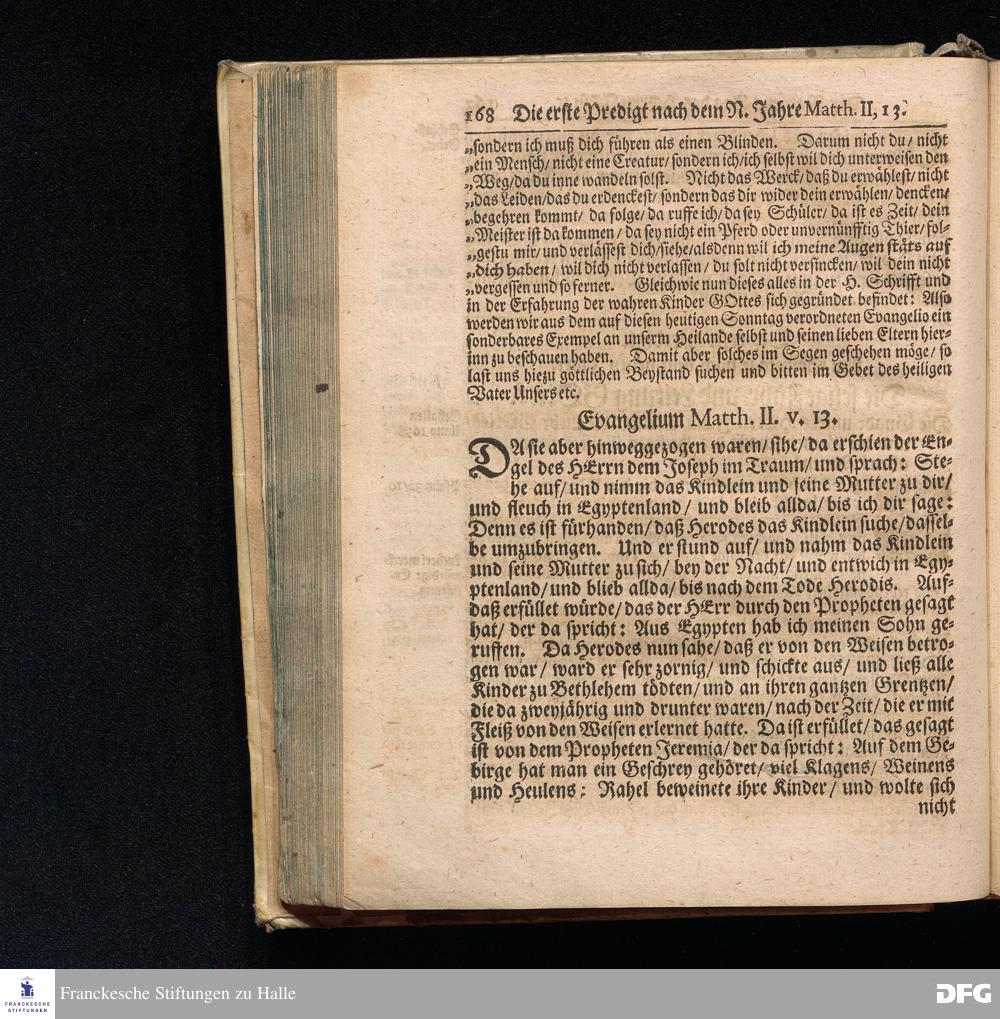 168 Die erste Predigt nach dem N. Jahre Matth. II, 13.
„sondern ich muß dich führen als einen Blinden. Darum nicht du/ nicht
„ein Mensch/ nicht eine Creatur/ sondern ich/ich selbst wil dich unterweisen den
„Weg/da du inne wandeln solst. Nicht das Werck/daß du erwählest/ nicht
„das Leiden/das du erdenckest/ sondern das dir wider dein erwählen/ dencken/
„begehren kommt/ da folge/ da ruffe ich/ da sey Schüler/ da ist es Zeit/ dein
„Meister ist da kommen/ da sey nicht ein Pferd oder unvernünfftig Thier/ fol-
„gestu mir/ und verlässest dich/siehe/alsdenn wil ich meine Augen stäts auf
„dich haben/ wil dich nicht verlassen/ du solt nicht versincken/ wil dein nicht
„vergessen und so ferner. Gleichwie nun dieses alles in der H. Schrifft und
in der Erfahrung der wahren Kinder GOttes sich gegründet befindet: Also
werden wir aus dem auf diesen heutigen Sonntag verordneten Evangelio ein
sonderbares Exempel an unserm Heilande selbst und seinen lieben Eltern hier-
inn zu beschauen haben. Damit aber solches im Segen geschehen möge/ so
last uns hiezu göttlichen Beystand suchen und bitten im Gebet des heiligen
Vater Unsers etc.
Evangelium Matth. II. v. 13.
DA sie aber hinweggezogen waren/ sihe/ da erschien der En-
gel des HErrn dem Joseph im Traum/ und sprach: Ste-
he auf/ und nimm das Kindlein und seine Mutter zu dir/
und fleuch in Egyptenland/ und bleib allda/ bis ich dir sage:
Denn es ist fürhanden/ daß Herodes das Kindlein suche/ dassel-
be umzubringen. Und er stund auf/ und nahm das Kindlein
und seine Mutter zu sich/ bey der Nacht/ und entwich in Egy-
ptenland/ und blieb allda/ bis nach dem Tode Herodis. Auf-
daß erfüllet würde/ das der HErr durch den Propheten gesagt
hat/ der da spricht: Aus Egypten hab ich meinen Sohn ge-
ruffen. Da Herodes nun sahe/ daß er von den Weisen betro-
gen war/ ward er sehr zornig/ und schickte aus/ und ließ alle
Kinder zu Bethlehem tödten/ und an ihren gantzen Grentzen/
die da zweyjährig und drunter waren/ nach der Zeit/ die er mit
Fleiß von den Weisen erlernet hatte. Da ist erfüllet/ das gesagt
ist von dem Propheten Jeremia/ der da spricht: Auf dem Ge-
birge hat man ein Geschrey gehöret/ viel Klagens/ Weinens
und Heulens: Rahel beweinete ihre Kinder/ und wolte sich
nicht
FRANCKESCHE
STIFTUNGEN
Franckesche Stiftungen zu Halle
DFG